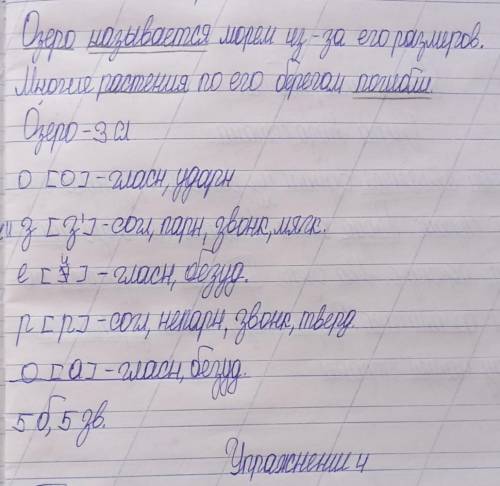 Озеро называется морем из-за его размеров.
Многие растения по его берегом погибли.
Озеро-3 сл
о [о]-гласн, ударн
з [з']-согл, парн, звонк, мягк.
е [и]-гласн, безуд.
р [р]-согл, непарн, звонк, тверд.
о [а]-гласн, безуд.
5 б, 5 зв.
Упражнении 4